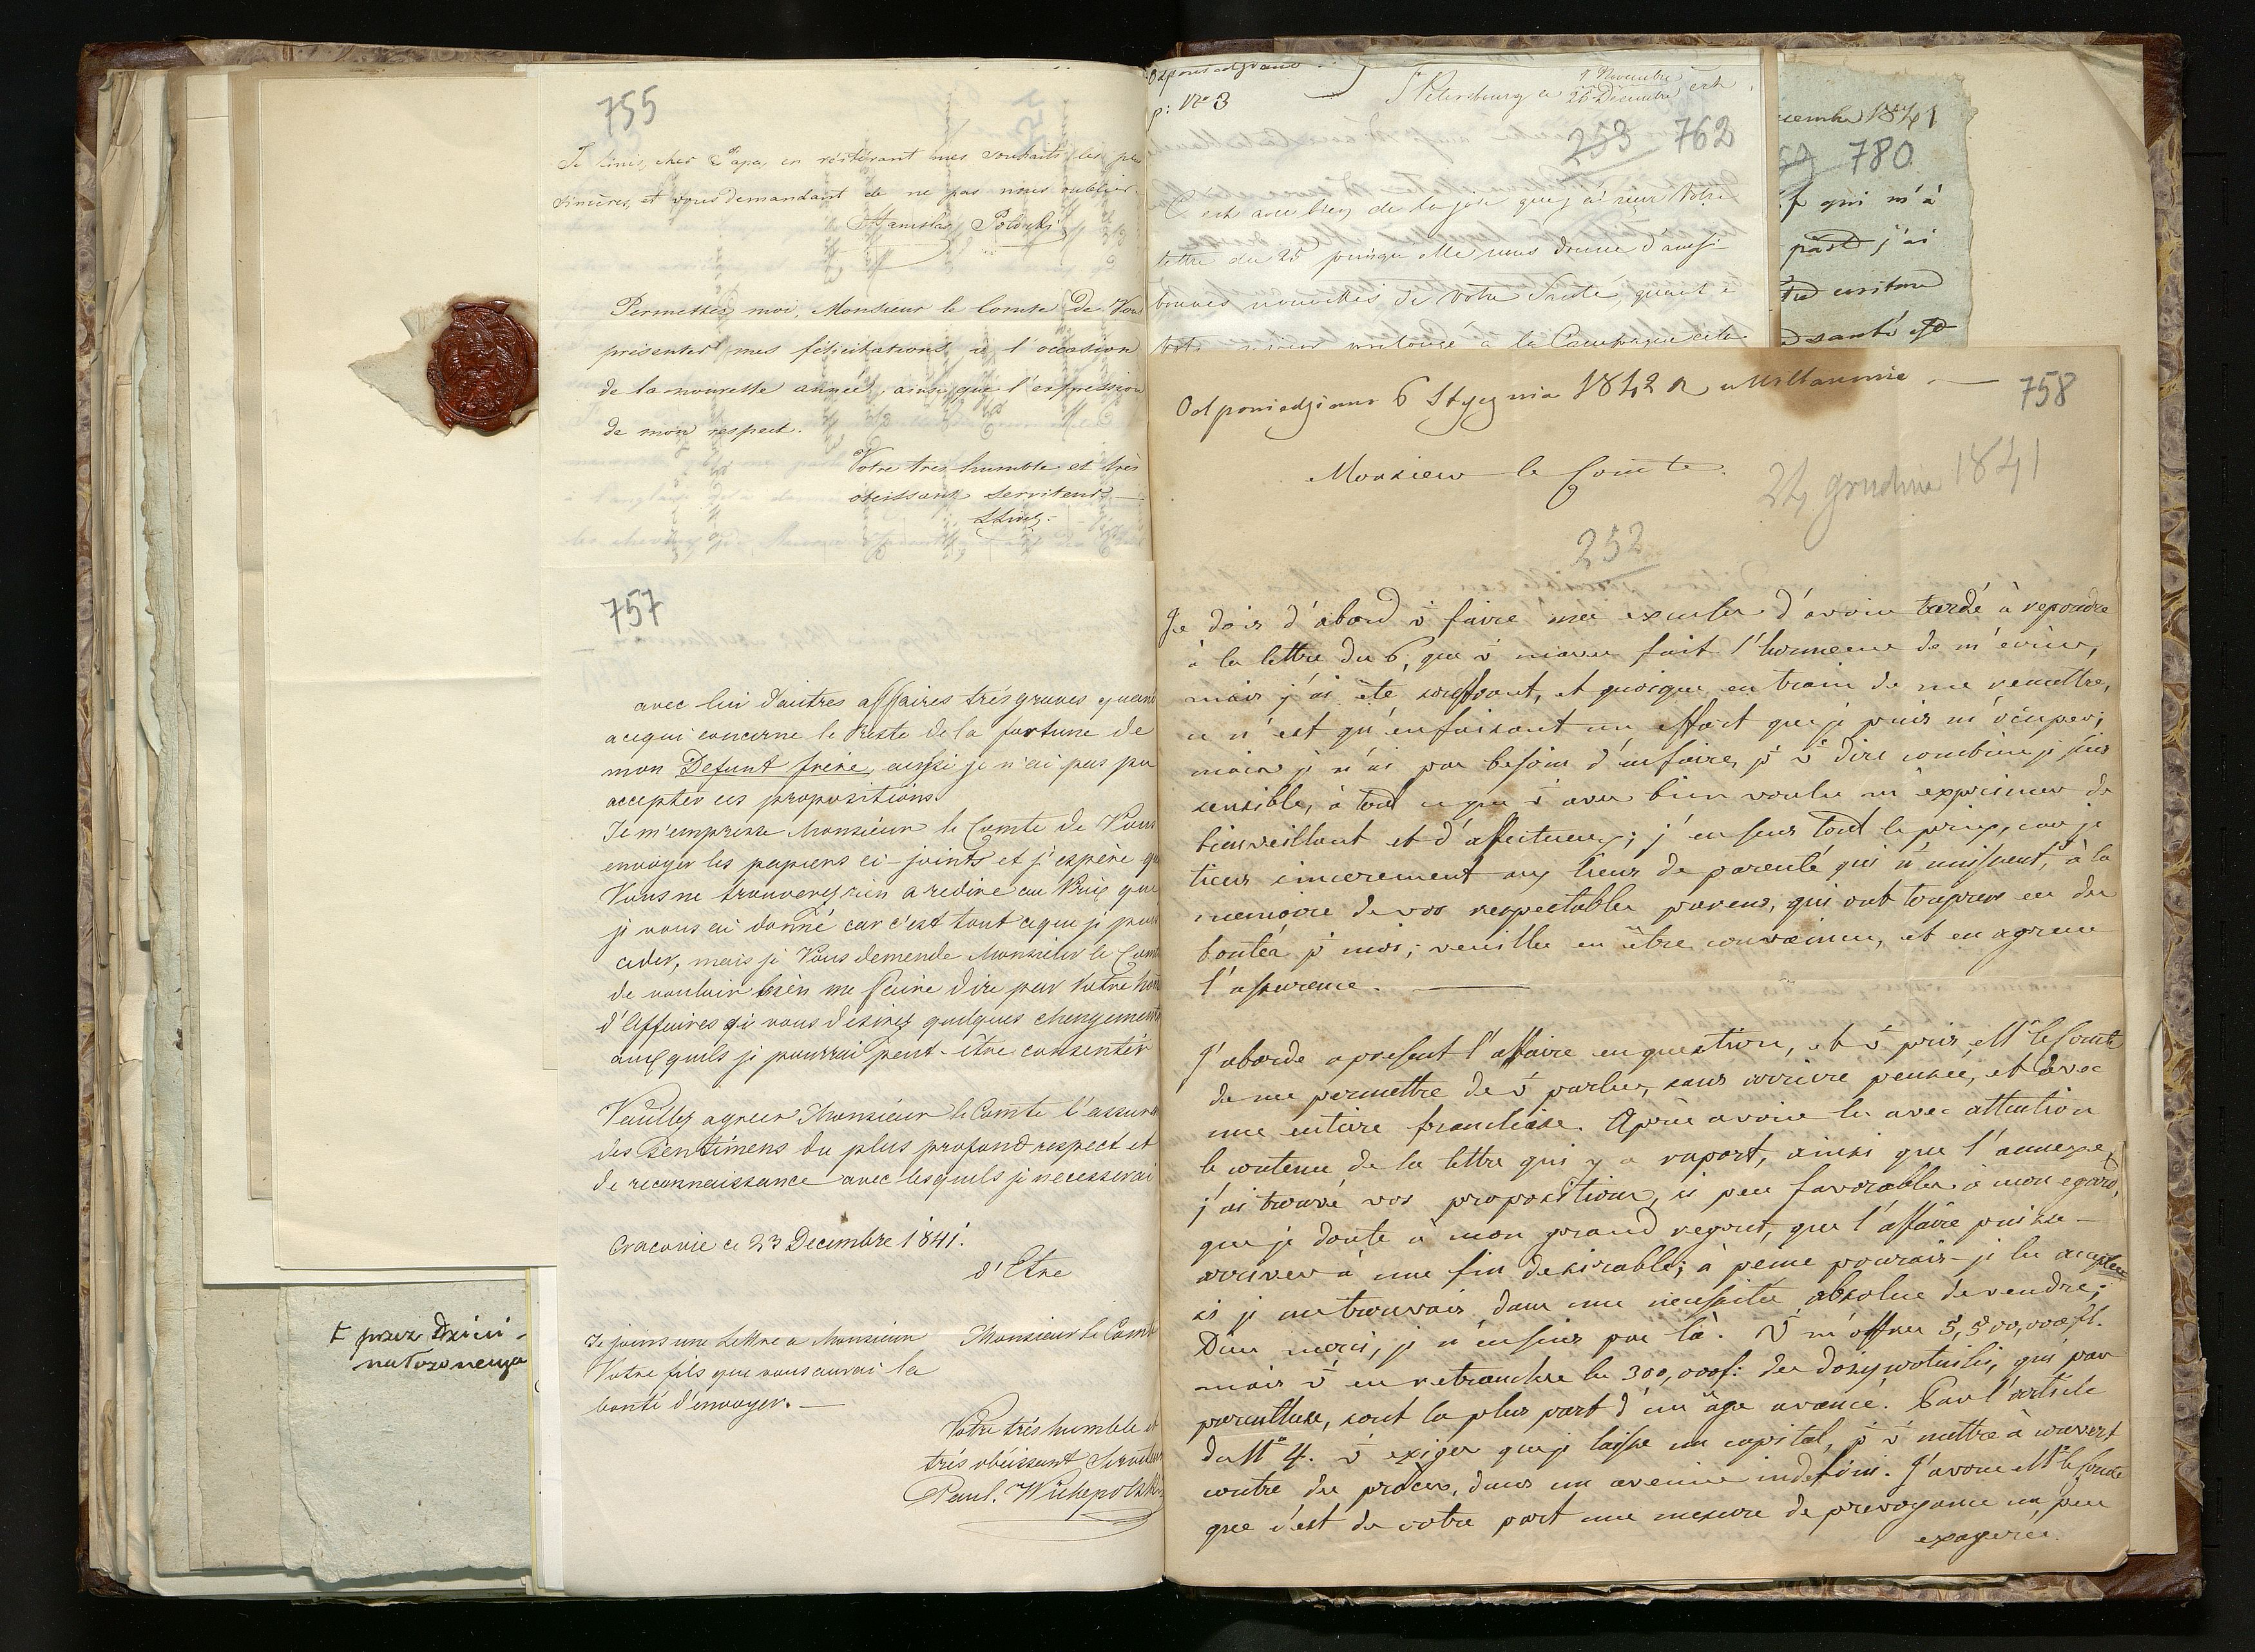 755
Je finis, cher Papa, en réitérant mes souhaits les plus
sincères, et vous demandant de ne pas nous oublier.
Stanislas Potocki
Permettez moi, Monsieur le Comte de Vous
présenter mes félicitations à l'occasion
de la nouvelle année, ainsi que l'expression
de mon respect.
Votre très humble et très
obéissant serviteur
757
avec lui d'autres affaires très graves quant
a cequi concerne le Reste de la fortune de
mon Defunt frère, aussi je n'ai pas pu
accepter ces propositions.
Je m'empresse Monsieur le Comte de Vous
envoyer les papiers ci-joints et j'espère que
Vous ne trouverez rien a redire au Prix que
je vous ai donné car c'est tout ceque je puis
ceder, mais je Vous demande Monsieur le Comte
de vouloir bien me faire dire par Votre hom
d'Affaires si vous desirez quelques changements
auxquels je pourrai peut-être consentir
Veuillez agreer Monsieur le Comte l'assuran
des Sentimens du plus profond respect et
de reconnaissance avec lesquels je necesserai
Cracovie ce 23 Decembre 1841.
d'Etre
Je joins une Lettre a Monsieur
Votre fils que vous aurai la
bonté d'envoyer. —
Monsieur le Comte
Votre très humble et
très obéissant Serviteur
Paul.
+ przez dzieci
nałożonego
p: Nro 3
St Petersbourg ce 7 Novembre
26 Decembre
253 762
C'est avec bien de la joie que j'ai reçu Votre
lettre du 25 puisqu'elle nous donne d'aussi
bonnes nouvelles de Votre Santé, quant à
prolongé à la Campagne
1841
780
qui m'a
j'ai
santé
Odpowiedziano 6 Stycznia 1842 R w Willanowie — 758
Monsieur le Comte
24 grudnia 1841
252
Je dois d'abord v̄ faire mes excuses d'avoir tardé à repondre
à la lettre du 6, que v̄ m'avez fait l'honneur de m'écrire,
mais j'ai été souffrant, et quoique en train de me remettre,
ce n'est qu'en faisant un effort que je puis m'ocuper;
mais je n'ai pas besoin d'en faire, p̄ v̄ dire combien je suis
sensible, à tout ce que v̄ avez bien voulu m'exprimer de
bienveillant et d'affectueux; j'en sens tout le prix, car je
tiens sincerement aux liens de parenté qui n̄ unissent, à la
memoire de vos respectables parens, qui ont toujours eu des
bontés p̄ moi; veuillez en être convaincu, et en agreer
l'assurence. ———
J'aborde apresent l'affaire en question, et v̄ prie, Mr le Comte
de me permettre de v̄ parler, sans arriere pensée, et avec
une entière franchise. Après avoir lu avec attention
le contenu de la lettre qui y a raport, ainsi que l'annexe,
j'ai trouvé vos propositions, si peu favorables à mon egard,
que je doute à mon grand regret, que l'affaire puisse
arriver à une fin desirable; à peine pourais-je les accepter
si je me trouvois dans une necessité absolue de vendre;
Dieu merci, je n'en suis pas là. V̄ m'offrez 5,500,000 fl.
mais v̄ en retranchez les 300,000 f: des dozywotniki, qui par
parenthèse, sont la plus part d'un âge avancé. Par l'article
du No 4. v̄ exigez que je laisse un capital, p̄ v̄ mettre à couvert
contre des procès, dans un avenir indefini. J'avoue Mr le Comte
que c'est de votre part une mesure de prevoyance un peu
exagerée.